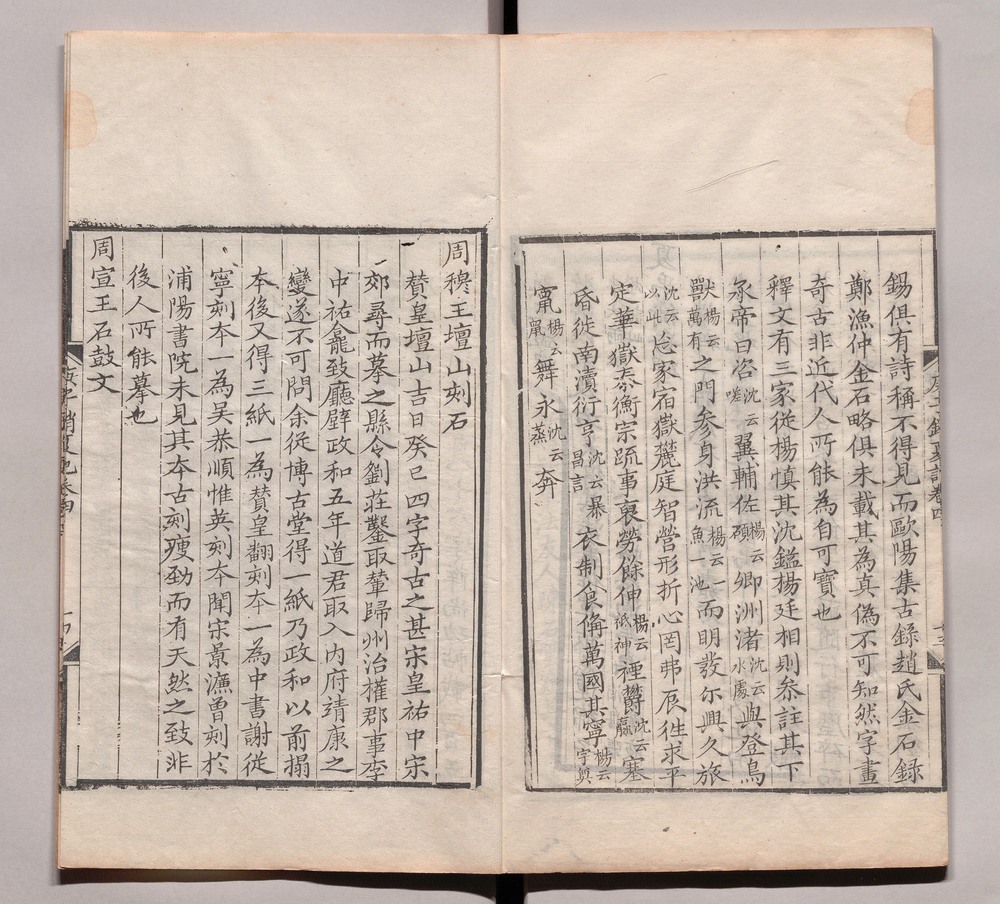 錫俱有詩稱不得見而歐陽集古錄趙氏金石錄
鄭漁仲金石略俱未載其為真偽不可知然字畫
奇古非近代人所能為自可寶也
釋文有三家從楊慎其沈鎰楊廷相則叅註其下
承帝曰咨沈云嗟翼輔佐楊云碩卿洲渚沈云水處與登鳥
獸楊云萬有之門參身洪流楊云一魚池一而明發尔興久旅
沈云以此忘家宿嶽麓庭智營形折心罔弗辰徃求平
定華嶽泰衡宗疏事裒勞餘伸楊云祗神禋欝沈云贏塞
昏徙南瀆衍亨沈云昌言暴衣制食俻萬國其寧楊云字與
竄楊云鼠舞永沈云蒸奔
周穆王壇山刻石
賛皇壇山吉日癸巳四字奇古之甚宋皇祐中宋
郊尋而摹之縣令劉莊鑿取輦歸州治權郡事李
中祐龕致廳壁政和五年道君取入内府靖康之
變遂不可問余從博古堂得一紙乃政和以前搨
本後又得三紙一為賛皇翻刻本一為中書謝從
寧刻本一為吴恭順惟英刻本聞宋景濂曾刻於
浦陽書院未見其本古刻瘦勁而有天然之致非
後人所能摹也
周宣王石鼓文